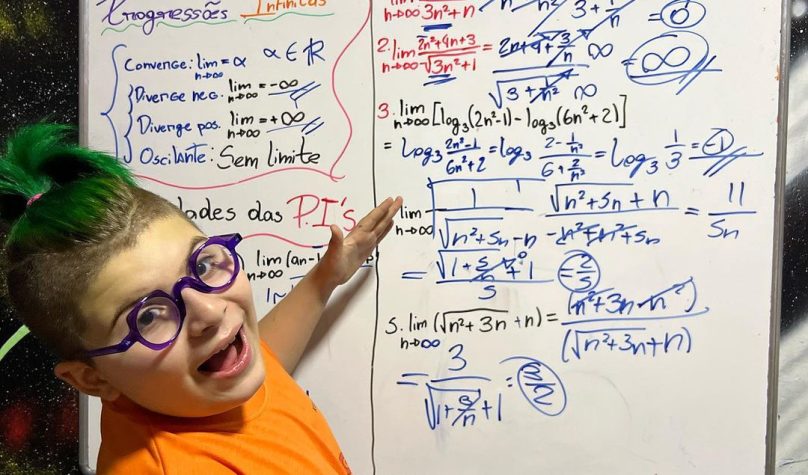 Progressões Infinitas
Converge: lim n→∞ = α α ∈ ℝ
Diverge neg. lim n→∞ = -∞
Diverge pos. lim n→∞ = +∞
Oscilante: Sem limite
dades das P.I's
lim n→∞ (an
n→∞ 3n²+n 3+1/n = 0
2. lim n→∞ 2n²+4n+3/√3n²+1 = 2n+4+3/n ∞/√3+1/n² ∞ = ∞
3. lim n→∞ [log₃(2n²-1)-log₃(6n²+2)]
= log₃ 2n²-1/6n²+2 = log₃ 2-1/n²/6+2/n² = log₃ 1/3 = -1
lim n→∞ 1/√n²+5n-n √n²+5n+n/-n²+n²+5n = 11/5n
= √1+5/n+1/5 = 2/5
5. lim n→∞ (√n²+3n+n) = (n²+3n-n²)/(√n²+3n+n)
= 3/√1+3/n+1 = 3/2